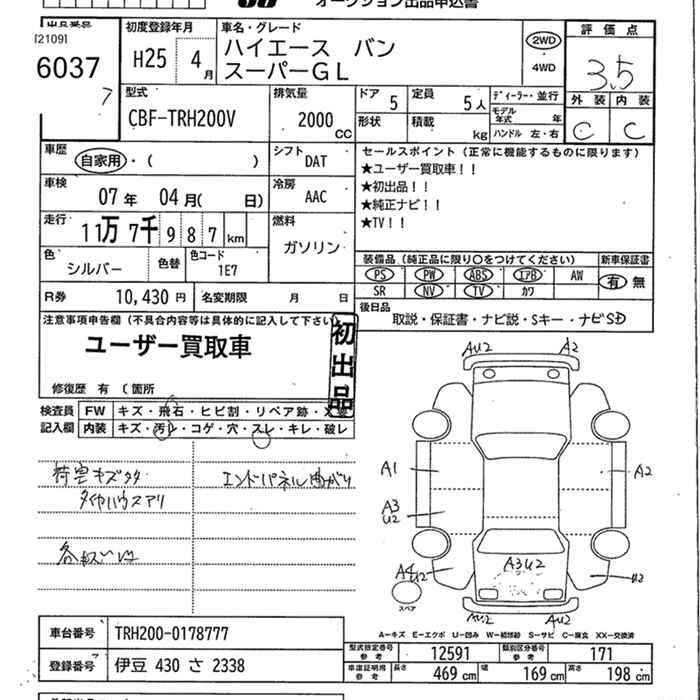 オークション出品申込書
出品番号
[2109]
6037
7
初度登録年月
H25 4月
車名・グレード
ハイエース バン
スーパーGL
2WD
4WD
評価点
3.5
外装 内装
C C
型式
CBF-TRH200V
排気量
2000 CC
ドア 5
形状
定員 5人
積載 kg
ディーラー・並行
モデル年式 年
ハンドル 左・右
車歴
自家用・( )
シフト
DAT
車検
07年 04月( 日)
冷房
AAC
走行
11万7千987km
燃料
ガソリン
色
シルバー
色替
色コード
1E7
R券 10,430円
名変期限 月 日
セールスポイント(正常に機能するものに限ります)
★ユーザー買取車!!
★初出品!!
★純正ナビ!!
★TV!!
装備品(純正品に限り○をつけてください)
PS PW ABS エアB AW
SR NV TV カワ
新車保証書
有 無
後日品
取説・保証書・ナビ説・Sキー・ナビSD
注意事項申告欄(不具合内容等は具体的に記入して下さい)
ユーザー買取車
初出品
修復歴 有 ( 箇所
検査員記入欄
FW キズ・飛石・ヒビ割・リペア跡・
内装 キズ・汚れ・コゲ・穴・スレ・キレ・破レ
荷室キズクタ
タイヤハウスアリ
エンドパネル曲がり
AU2 A2
A1 A2
A3
U2
A3U2
A4U2
U2
AU2 AU2
スペア
A-キズ E-エクボ U-凹み W-補修跡 S-サビ C-腐食 XX-交換済
車台番号 TRH200-0178777
登録番号 伊豆 430 さ 2338
型式指定番号 参考 12591
類別区分番号 参考 171
車庫証明用 参考
長さ 469 cm 幅 169 cm 高さ 198 cm